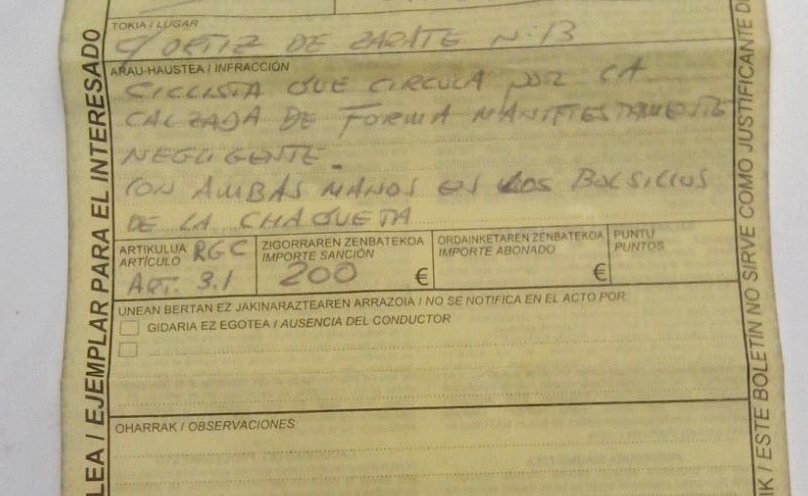 TOKIA / LUGAR
C/ ORTIZ DE ZARATE Nº 13
ARAU-HAUSTEA / INFRACCIÓN
CICLISTA QUE CIRCULA POR LA
CALZADA DE FORMA MANIFIESTAMENTE
NEGLIGENTE.
CON AMBAS MANOS EN LOS BOLSILLOS
DE LA CHAQUETA
ARTIKULUA RGC
ARTÍCULO
ART. 3.1
ZIGORRAREN ZENBATEKOA
IMPORTE SANCIÓN
200 €
ORDAINKETAREN ZENBATEKOA
IMPORTE ABONADO
€
PUNTU
PUNTOS
UNEAN BERTAN EZ JAKINARAZTEAREN ARRAZOIA / NO SE NOTIFICA EN EL ACTO POR
GIDARIA EZ EGOTEA / AUSENCIA DEL CONDUCTOR
OHARRAK / OBSERVACIONES
LEA / EJEMPLAR PARA EL INTERESADO
/ ESTE BOLETÍN NO SIRVE COMO JUSTIFICANTE